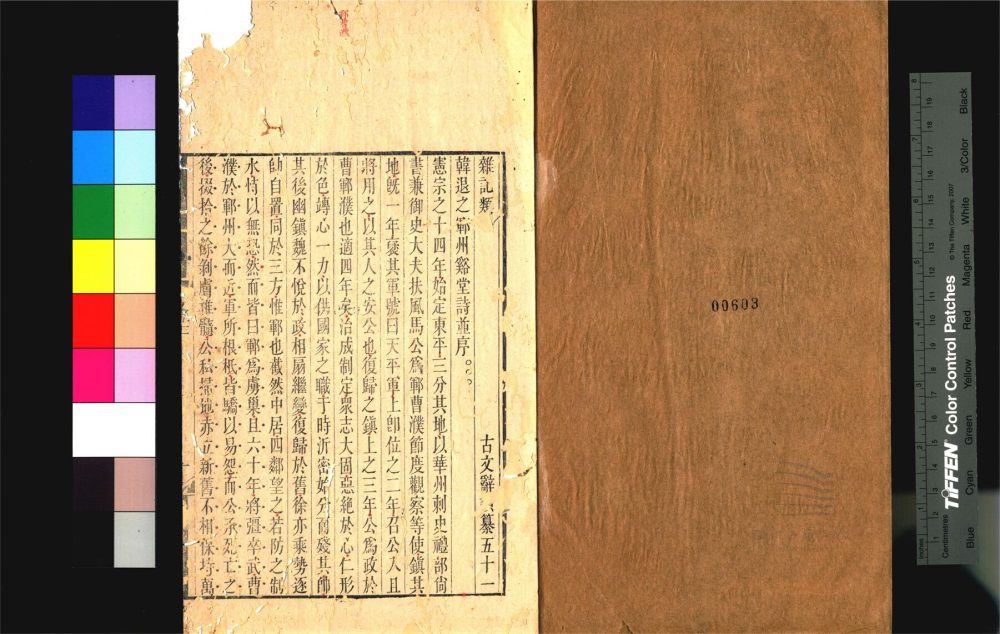 雜記類
古文辭 纂五十一
韓退之鄆州谿堂詩並序
憲宗之十四年始定東平三分其地以華州刺史禮部尙
書兼御史大夫扶風馬公爲鄆曹濮節度觀察等使鎭其
地旣一年襃其軍號曰天平軍上卽位之二年召公入且
將用之以其人之安公也復歸之鎭上之三年公爲政於
曹鄆濮也適四年矣治成制定衆志大固惡絶於心仁形
於色竱心一力以供國家之職于時沂密始分而殘其帥
其後幽鎭魏不悅於政相扇繼變復歸於舊徐亦乘勢逐
帥自置同於三方惟鄆也截然中居四鄰望之若防之制
水恃以無恐然而皆曰鄆爲虜巢且六十年將彊卒武曹
濮於鄆州大而近軍所根柢皆驕以易怨而公承死亡之
後掇拾之餘剝膚椎髓公私埽地赤立新舊不相保持萬
00603
TIFFEN Color Control Patches
© The Tiffen Company, 2007
Inches
Centimetres
1 2 3 4 5 6 7 8
1 2 3 4 5 6 7 8 9 10 11 12 13 14 15 16 17 18 19
Blue
Cyan
Green
Yellow
Red
Magenta
White
3/Color
Black